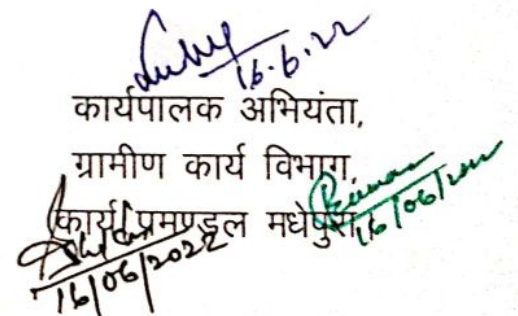 16.6.22
कार्यपालक अभियंता,
ग्रामीण कार्य विभाग,
कार्य प्रमण्डल मधेपुरा,
16/06/2022
16/06/2022